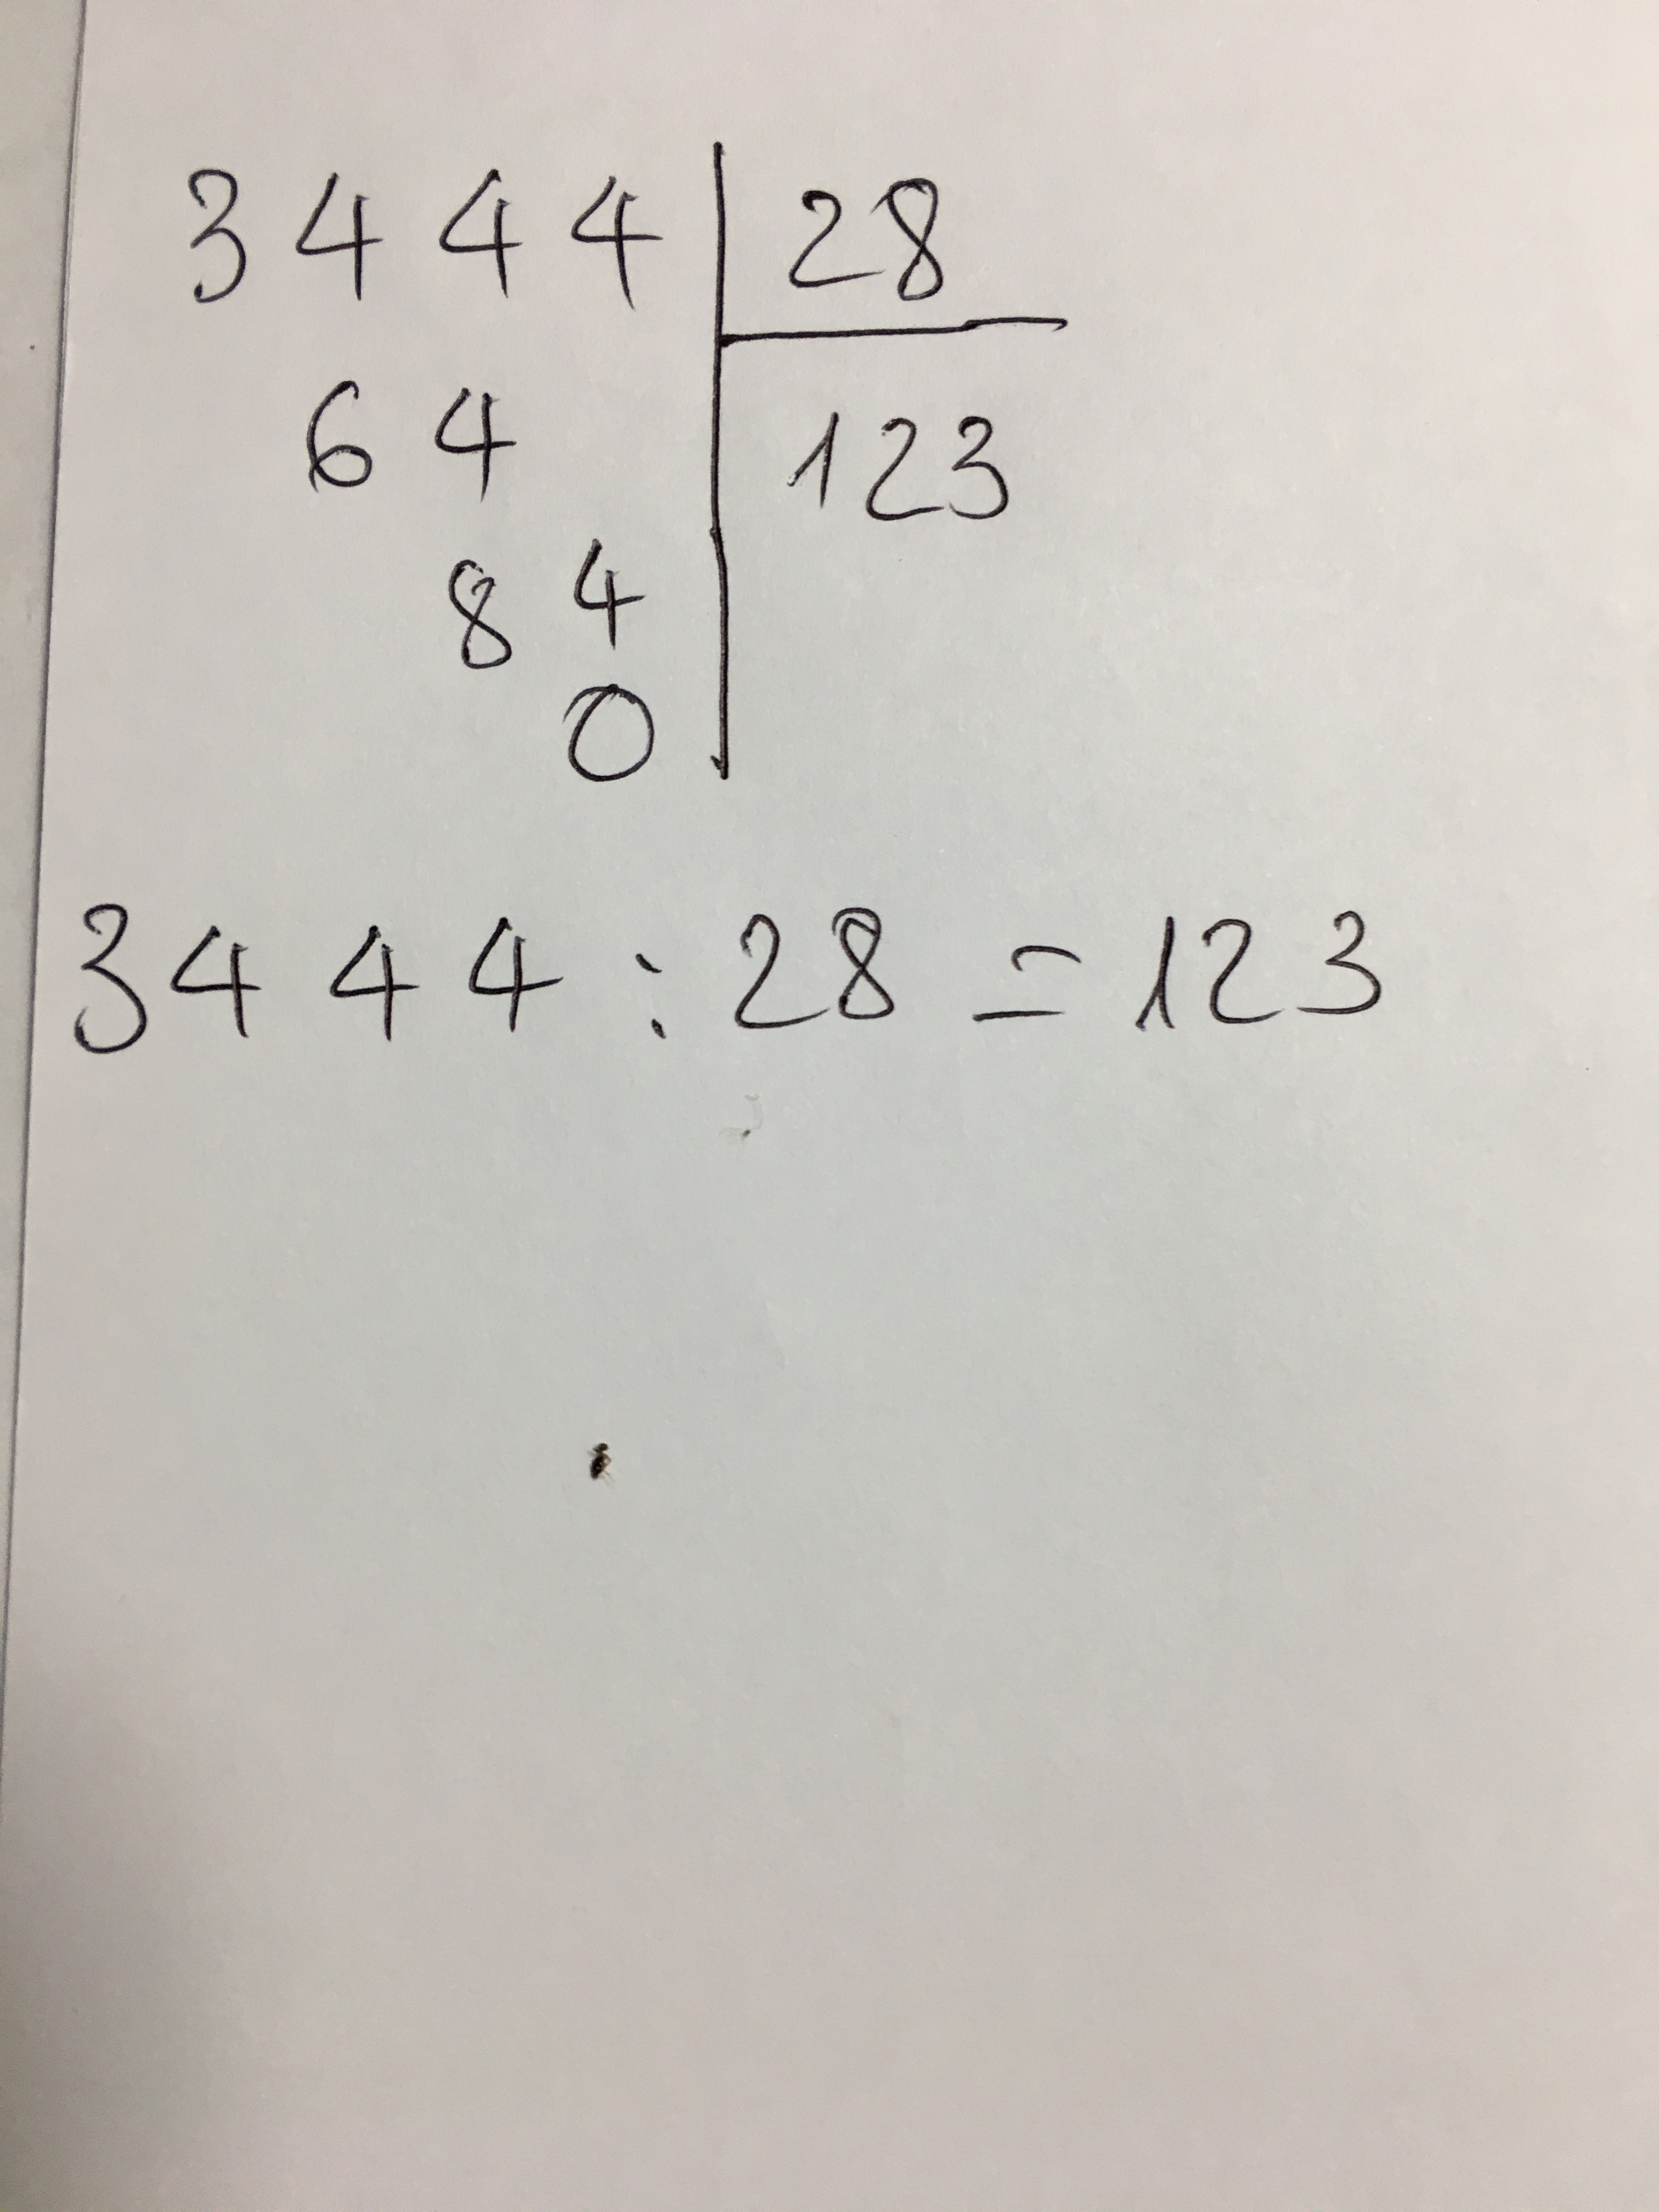 3444 28
64 123
84
0
3444 : 28 = 123